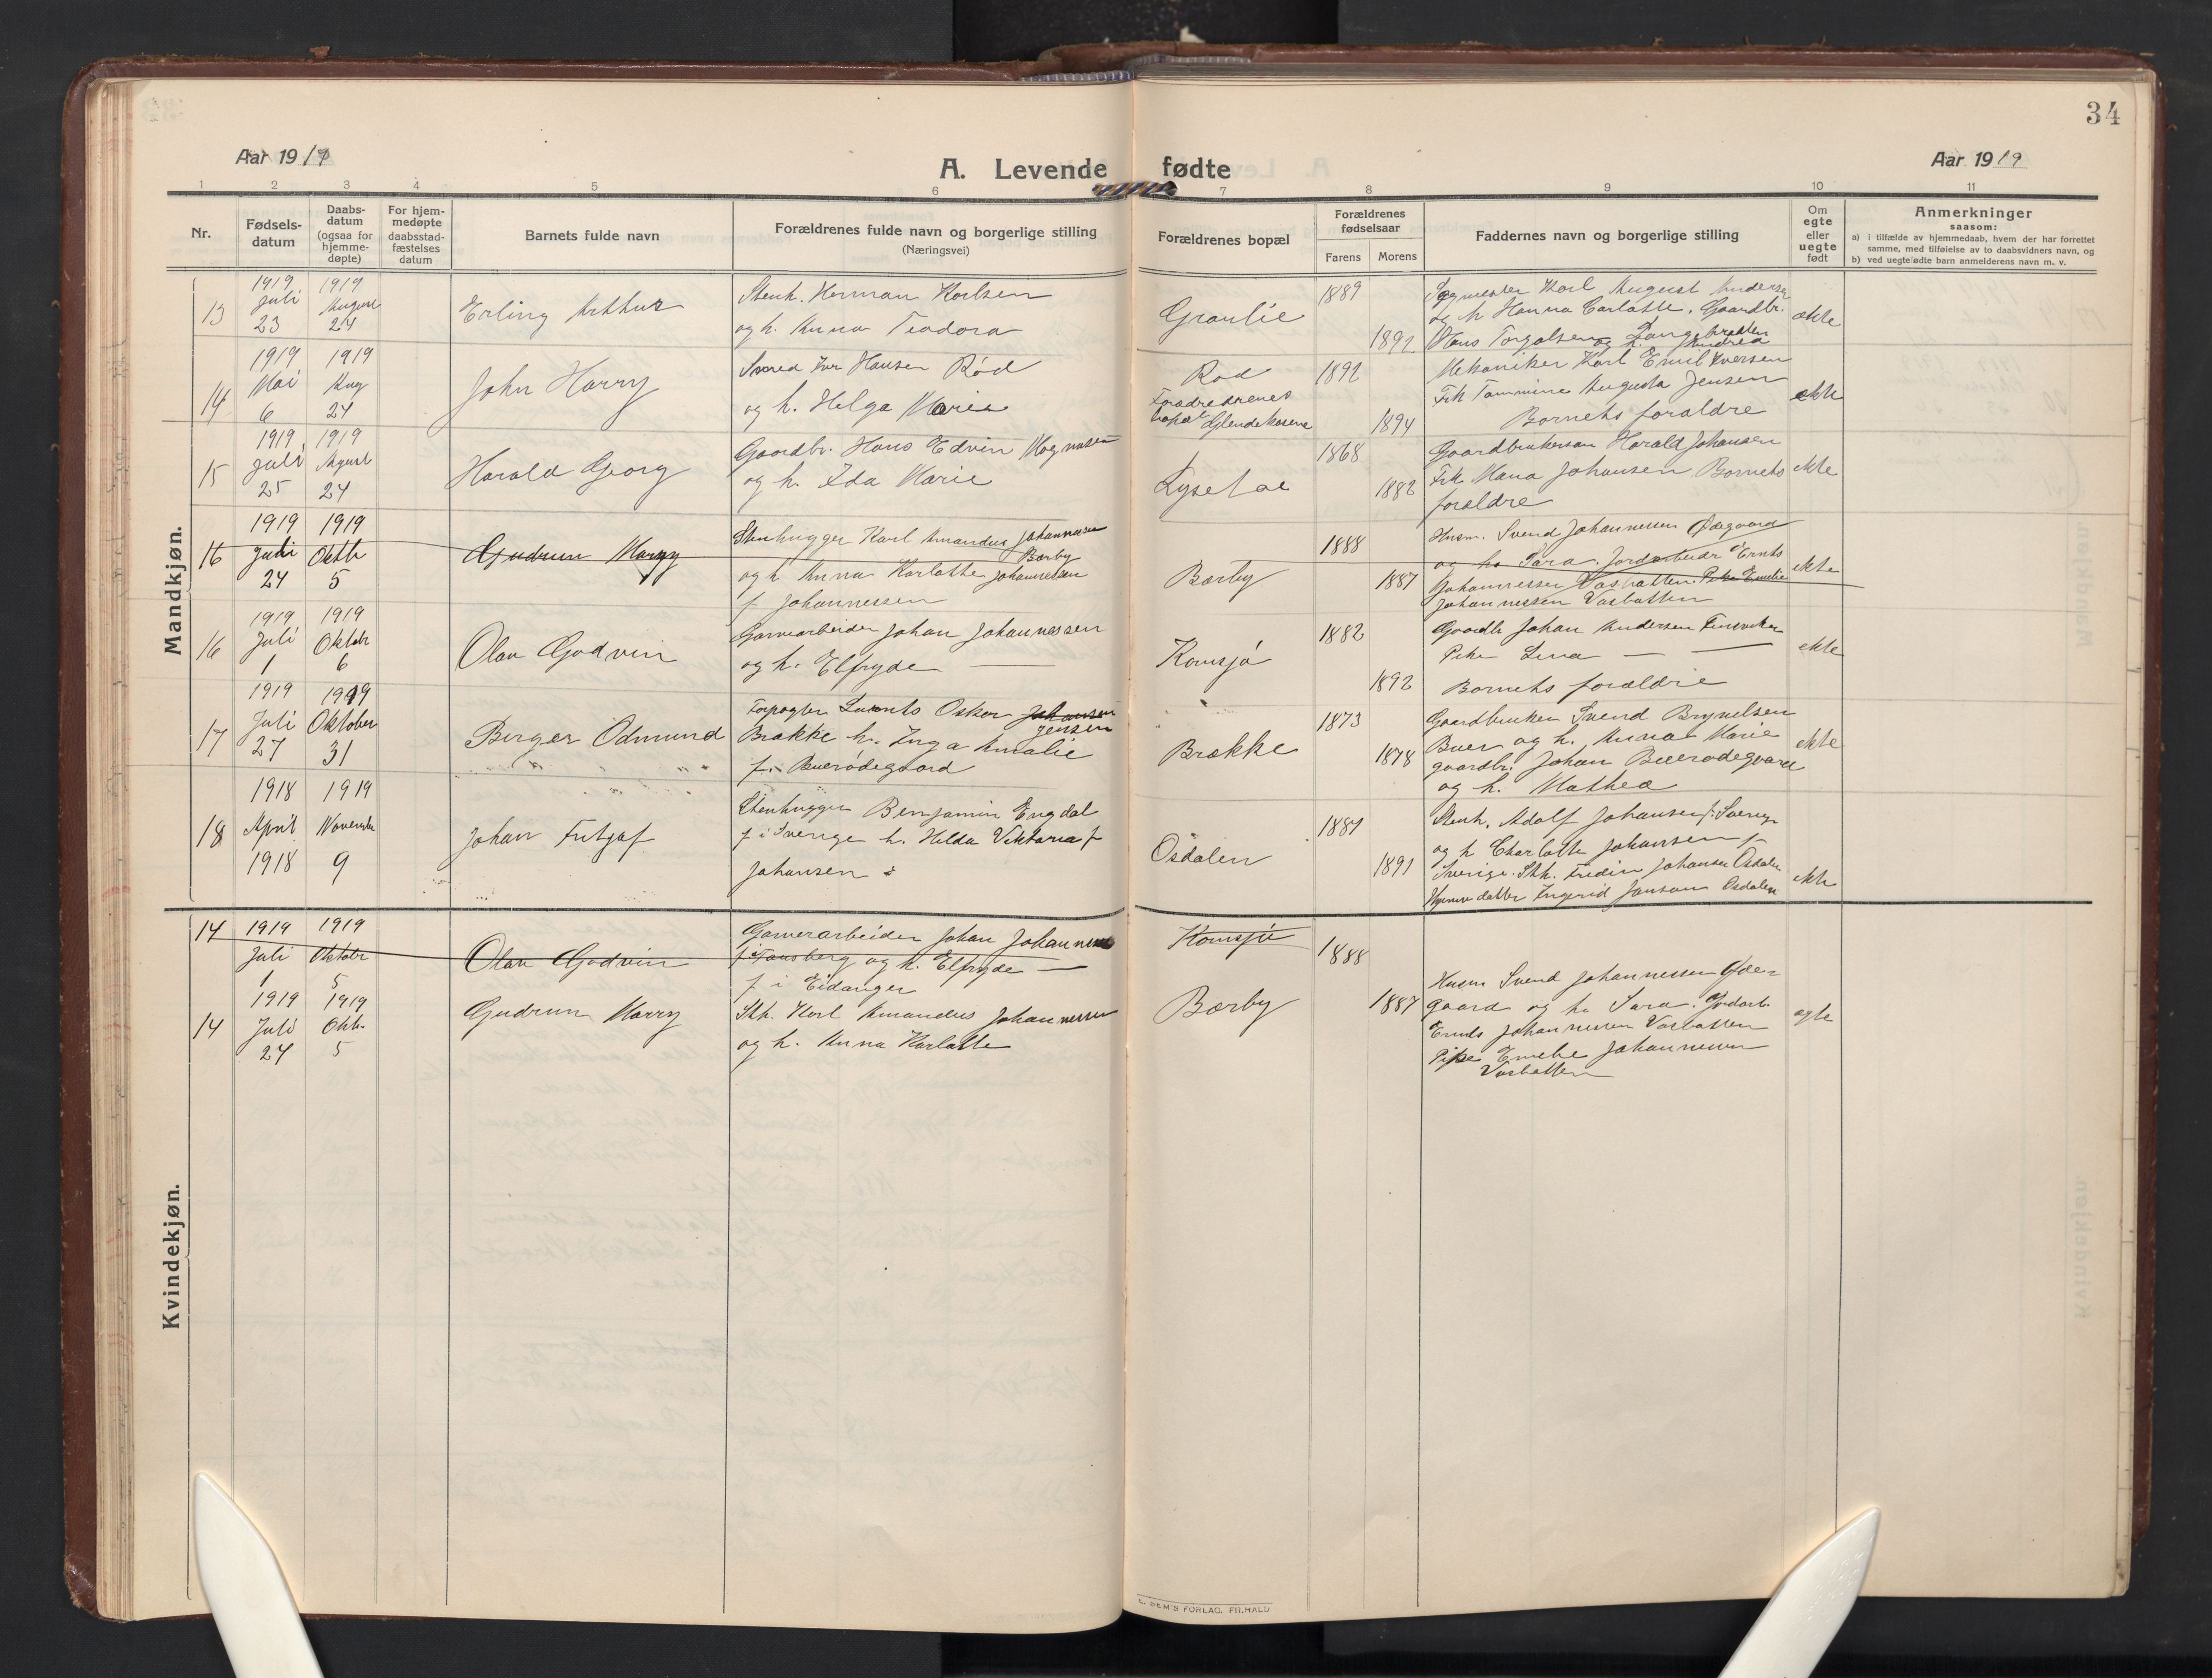 34
Aar 1919
A. Levende fødte
Aar 1919
1 2 3 4 5 6 7 8 9 10 11
Nr.
Fødsels-
datum
Daabs-
datum
(ogsaa for
hjemme-
døpte)
For hjem-
medøpte
daabsstad-
fæstelses
datum
Barnets fulde navn
Forældrenes fulde navn og borgerlige stilling
(Næringsvei)
Forældrenes bopæl
Forældrenes
fødselsaar
Farens Morens
Faddernes navn og borgerlige stilling
Om
egte
eller
uegte
født
Anmerkninger
saasom:
a) i tilfælde av hjemmedaab, hvem der har forrettet
samme, med tilføielse av to daabsvidners navn, og
b) ved uegte fødte barn anmelderens navn m. v.
Mandkjøn.
13
1919
Juli
23
1919
August
24
Erling Arthur
Stenh. Herman Karlsen
og h. Anna Teodora
Graulie
1889
1892
Karl August Anders
og h Hanna Carlotte, Gaardbr.
Hans Torgalsen Langebrekken
og h. Andrea
ekte
14
1919
Mai
6
1919
Aug
24
John Harry
Ivar Hansen Rød
og h. Helga Marie
Rød
Forældrenes
bopæl Glendekasene
1892
1894
Mekaniker Karl Emil Iversen
Frk Tommine Augusta Jensen
Barnets foraldre
ekte
15
1919
Juli
25
1919
August
24
Harald Georg
Gaardbr. Hans Edvin Magnusen
og h. Ida Marie
1868
1882
Gaardbrukersøn Harald Johansen
Frk. Johansen Barnets
foraldre
ekte
16
1919
Juli
24
1919
Oktb
5
Gudrun Marry
Stenhugger Karl Amandus Johannesen
Bærby
og h Anna Karlotte Johannessen
f Johannessen
Bærby
1888
1887
Husm. Svend Johannessen Ødegaard
og h. Sara. Jordarbeidr Ernts
Johannessen Vasbatten. Pike Emelie
Johannessen Vasbatten
ekte
16
1919
Juli
1
1919
Oktobr
6
Olav Godvin
Garverarbeider Johan Johannessen
og h. Elfryde —
Komsjø
1882
1892
Gaardb Johan Andersen
Pike Lina — —
Barnets foraldre
ekte
17
1919
Juli
27
1919
Oktober
31
Birger Odmund
Forpagter Oskar Johansen
Jensen
Brække h. Inga Amalie
f. Buerødegaard
Brække
1873
1878
Gaardbruker Svend Brynelsen
Buer og h. Anna Marie
gaardbr. Johan Buerødegaard
og h. Mathea
ekte
18
1918
April
1918
1919
November
9
Johan Fritjof
Stenhugger Benjamin Engdal
f i Sverige h. Hilda Viktoria f
Johansen
Osdalen
1881
1891
Stenh. Adolf Johansen f. Sverige
og h Charlotte Johansen f
Sverige. Stk. Fridin Johansen Osdalen
datter Ingrid Osdalen
ekte
Kvindekjøn.
14
1919
Juli
1
1919
Oktobr
5
Olav Godvin
Garverarbeider Johan Johannessen
f i Tønsberg og h. Elfryde —
f i Eidanger
Komsjø
1888
14
1919
Juli
24
1919
Oktb.
5
Gudrun Marry
Stk. Karl Amandus Johannessen
og h. Anna Karlotte
Bærby
1887
Husm Svend Johannessen Øde-
gaard og h. Sara. Jordarb.
Ernts Johannessen Vasbatten
Pike Emelie Johannessen
Vasbatten
egte
E. SEM'S FORLAG, FR.HALD